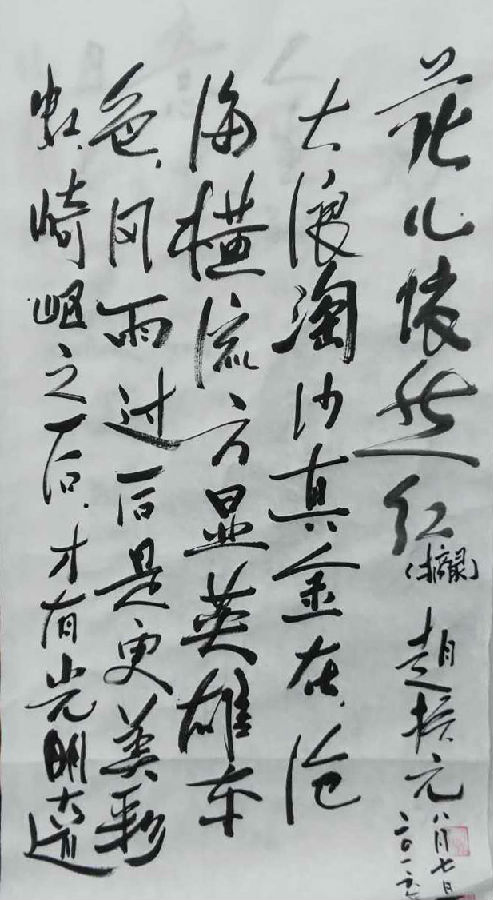 花儿依然红（摘录） 赵振元
八月七日
大浪淘沙真金在，沧
海横流方显英雄本
色，风雨过后是更美彩
虹，崎岖之后，才有光明大道